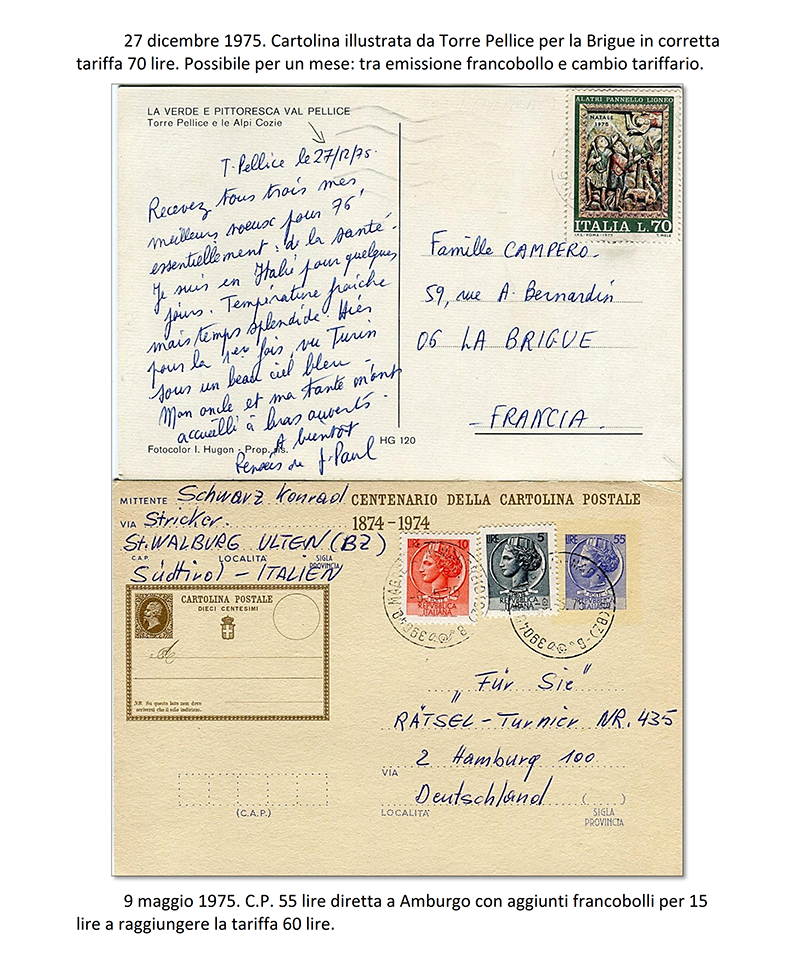 27 dicembre 1975. Cartolina illustrata da Torre Pellice per la Brigue in corretta
tariffa 70 lire. Possibile per un mese: tra emissione francobollo e cambio tariffario.
LA VERDE E PITTORESCA VAL PELLICE
Torre Pellice e le Alpi Cozie
T. Pellice le 27/12/75.
Recevez tous trois mes
meilleurs voeux pour 76,
essentiellement : de la santé.
Je suis en Italie pour quelques
jours. Température fraîche
mais temps splendide. Hier
pour la 1ère fois, vu Turin
sous un beau ciel bleu.
Mon oncle et ma tante m'ont
accueilli à bras ouverts.
A bientôt
J. Paul
Fotocolor I. Hugon - Prop. ris.
HG 120
ALATRI PANNELLO LIGNEO
NATALE
1975
ITALIA L. 70
I.P.S.-ROMA-1975 T. MELE
Famille CAMPERO.
59, rue A. Bernardin
06 LA BRIGUE
- FRANCIA.
MITTENTE Schwarz Konrad
VIA Stricker.
St. WALBURG ULTEN (BZ)
C.A.P. LOCALITÀ SIGLA PROVINCIA
Südtirol - ITALIEN
CENTENARIO DELLA CARTOLINA POSTALE
1874-1974
LIRE 10
REPVBBLICA
ITALIANA
LIRE 5
REPVBBLICA
ITALIANA
LIRE 55
CARTOLINA POSTALE
DIECI CENTESIMI
A
NB. Su questo lato non deve
scriversi che il solo indirizzo.
„Für Sie"
RÄTSEL-Turnier NR. 435
2 Hamburg 100
VIA
Deutschland
LOCALITÀ
(C.A.P.)
SIGLA
PROVINCIA
9 maggio 1975. C.P. 55 lire diretta a Amburgo con aggiunti francobolli per 15
lire a raggiungere la tariffa 60 lire.